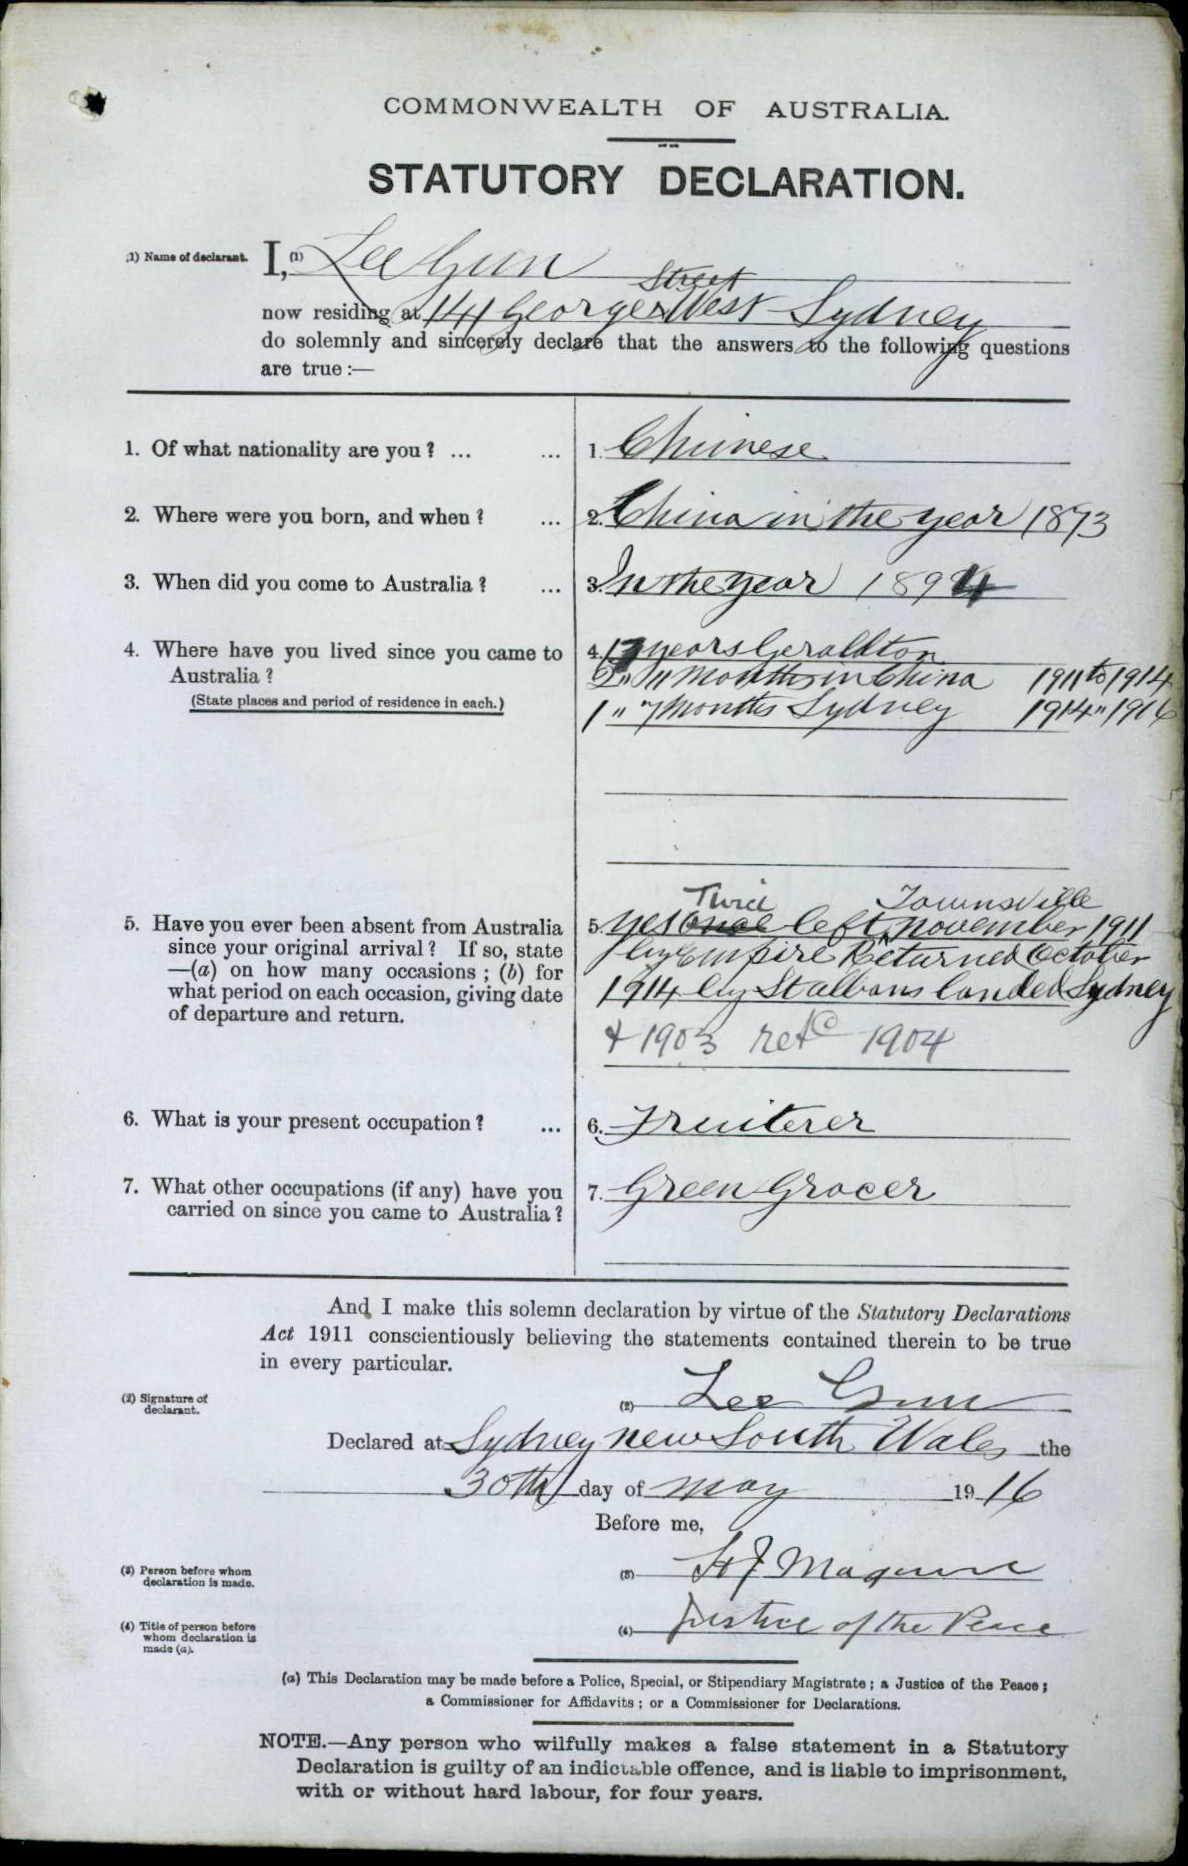 COMMONWEALTH OF AUSTRALIA.
STATUTORY DECLARATION.
(1) Name of declarant. I, (1) Lee Gun
Street
now residing at 141 George West Sydney
do solemnly and sincerely declare that the answers to the following questions
are true :—
1. Of what nationality are you ? ... ... 1. Chinese
2. Where were you born, and when ? ... 2. China in the year 1873
3. When did you come to Australia ? ... 3. In the year 1894
4. Where have you lived since you came to 4. 17 years Geraldton
Australia ? 2 " 11 Months in China 1911 to 1914
(State places and period of residence in each.) 1 " 7 Months Sydney 1914 " 1916
Twice Townsville
5. Have you ever been absent from Australia 5. yes once left November 1911
since your original arrival ? If so, state by Empire Returned October
—(a) on how many occasions ; (b) for 1914 by St albans landed Sydney
what period on each occasion, giving date
of departure and return. & 1903 retd 1904
6. What is your present occupation ? ... 6. Fruiterer
7. What other occupations (if any) have you 7. Green Grocer
carried on since you came to Australia ?
And I make this solemn declaration by virtue of the Statutory Declarations
Act 1911 conscientiously believing the statements contained therein to be true
in every particular.
(2) Signature of declarant. (2) Lee Gun
Declared at Sydney new South Wales the
30th day of may 1916
Before me,
(3) Person before whom declaration is made. (3) H J Maguire
(4) Title of person before whom declaration is made (a). (4) Justice of the Peace
(a) This Declaration may be made before a Police, Special, or Stipendiary Magistrate ; a Justice of the Peace ;
a Commissioner for Affidavits ; or a Commissioner for Declarations.
NOTE.—Any person who wilfully makes a false statement in a Statutory
Declaration is guilty of an indictable offence, and is liable to imprisonment,
with or without hard labour, for four years.